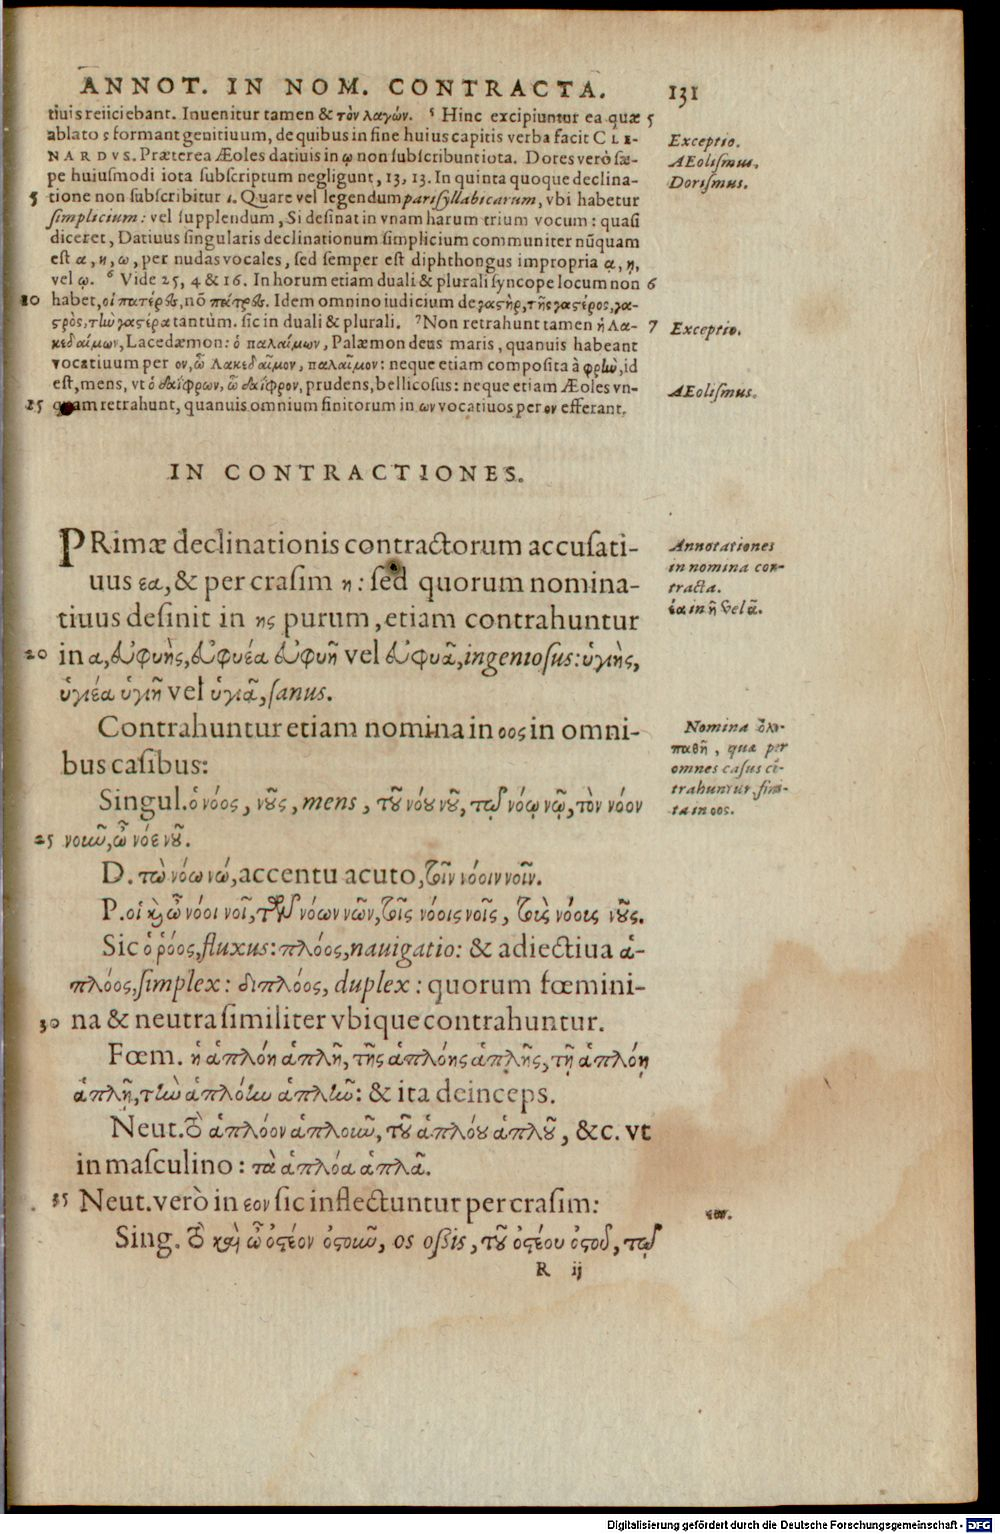 ANNOT. IN NOM. CONTRACTA. 131
tiuis reiiciebant. Inuenitur tamen & τὸν λαγών. ⁵ Hinc excipiuntur ea quæ 5
ablato ς formant genitiuum, de quibus in fine huius capitis verba facit CLE-
NARDVS. Præterea Æoles datiuis in ῳ non subscribunt iota. Dores verò sæ-
pe huiusmodi iota subscriptum negligunt, 13, 13. In quinta quoque declina-
5 tione non subscribitur ι. Quare vel legendum parisyllabicarum, vbi habetur
simplicium: vel supplendum, Si desinat in vnam harum trium vocum: quasi
diceret, Datiuus singularis declinationum simplicium communiter nũquam
est α, η, ω, per nudas vocales, sed semper est diphthongus impropria ᾳ, ῃ,
vel ῳ. ⁶ Vide 25, 4 & 16. In horum etiam duali & plurali syncope locum non 6
10 habet, οἱ πατέρες, nõ πάτρες. Idem omnino iudicium de γαστὴρ, τῆς γαστέρος, γα-
στρὸς, τὴν γαστέρα tantùm. sic in duali & plurali. ⁷ Non retrahunt tamen ἡ Λα- 7
κεδαίμων, Lacedæmon: ὁ παλαίμων, Palæmon deus maris, quanuis habeant
vocatiuum per ον, ὦ Λακεδαῖμον, παλαῖμον: neque etiam composita à φρὴν, id
est, mens, vt ὁ δαΐφρων, ὦ δαΐφρον, prudens, bellicosus: neque etiam Æoles vn-
15 quam retrahunt, quanuis omnium finitorum in ων vocatiuos per ον efferant.
Exceptio.
AEolismus.
Dorismus.
Exceptio.
AEolismus.
IN CONTRACTIONES.
PRimæ declinationis contractorum accusati-
uus εα, & per crasim η: sed quorum nomina-
tiuus desinit in ης purum, etiam contrahuntur
20 in α, εὐφυὴς, εὐφυέα εὐφυῆ vel εὐφυᾶ, ingeniosus: ὑγιὴς,
ὑγιέα ὑγιῆ vel ὑγιᾶ, sanus.
Annotationes
in nomina con-
tracta.
έα in ῆ vel ᾶ.
Contrahuntur etiam nomina in οος in omni-
bus casibus:
Singul. ὁ νόος, νοῦς, mens, τοῦ νόου νοῦ, τῷ νόῳ νῷ, τὸν νόον
25 νοῦν, ὦ νόε νοῦ.
D. τὼ νόω νώ, accentu acuto, τοῖν νόοιν νοῖν.
P. οἱ καὶ ὦ νόοι νοῖ, τῶν νόων νῶν, τοῖς νόοις νοῖς, τοὺς νόους νοῦς.
Nomina ὁλο-
παθῆ, quæ per
omnes casus cõ-
trahuntur, fini-
ta in οος.
Sic ὁ ῥόος, fluxus: πλόος, nauigatio: & adiectiua ἁ-
πλόος, simplex: διπλόος, duplex: quorum fœmini-
30 na & neutra similiter vbique contrahuntur.
Fœm. ἡ ἁπλόη ἁπλῆ, τῆς ἁπλόης ἁπλῆς, τῇ ἁπλόῃ
ἁπλῇ, τὴν ἁπλόην ἁπλῆν: & ita deinceps.
Neut. τὸ ἁπλόον ἁπλοῦν, τοῦ ἁπλόου ἁπλοῦ, &c. vt
in masculino: τὰ ἁπλόα ἁπλᾶ.
35 Neut. verò in εον sic inflectuntur per crasim:
εον.
Sing. τὸ καὶ ὦ ὀστέον ὀστοῦν, os ossis, τοῦ ὀστέου ὀστοῦ, τῷ
R ij
Digitalisierung gefördert durch die Deutsche Forschungsgemeinschaft - DFG